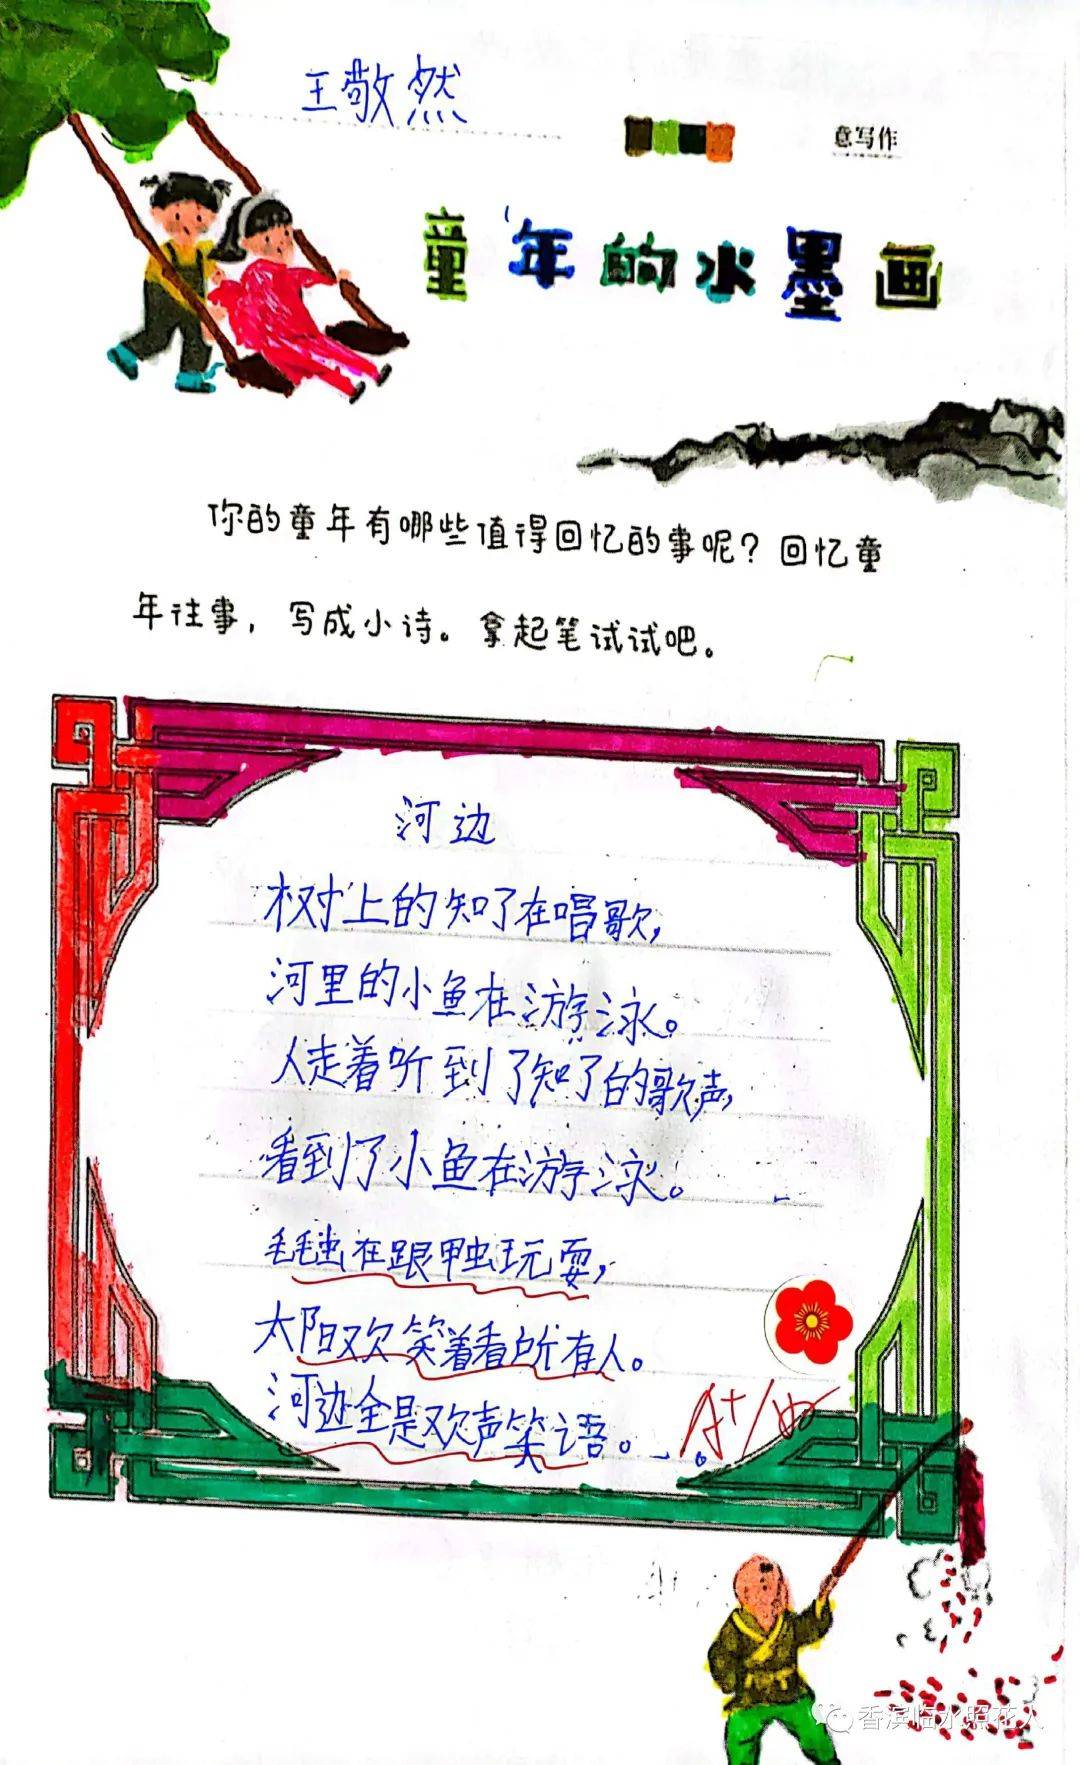 王敬然
意写作
童年的水墨画
你的童年有哪些值得回忆的事呢？回忆童
年往事，写成小诗。拿起笔试试吧。
河边
树上的知了在唱歌，
河里的小鱼在游泳。
人走着听到了知了的歌声，
看到了小鱼在游泳。
毛毛虫在跟甲虫玩耍，
太阳欢笑着看所有人。
河边全是欢声笑语。
A+
香滨临水照花人